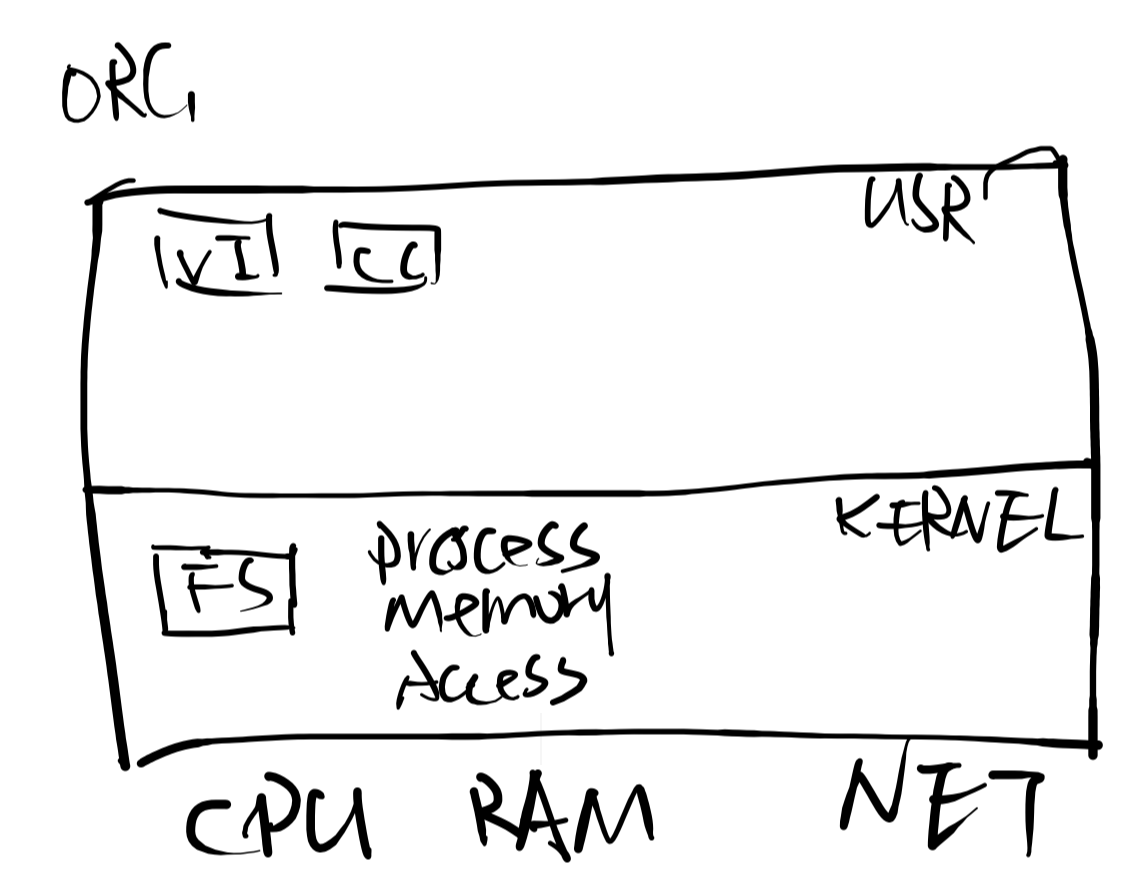 ORG
USR
VI CC
KERNEL
FS process
Memory
Access
CPU RAM NET